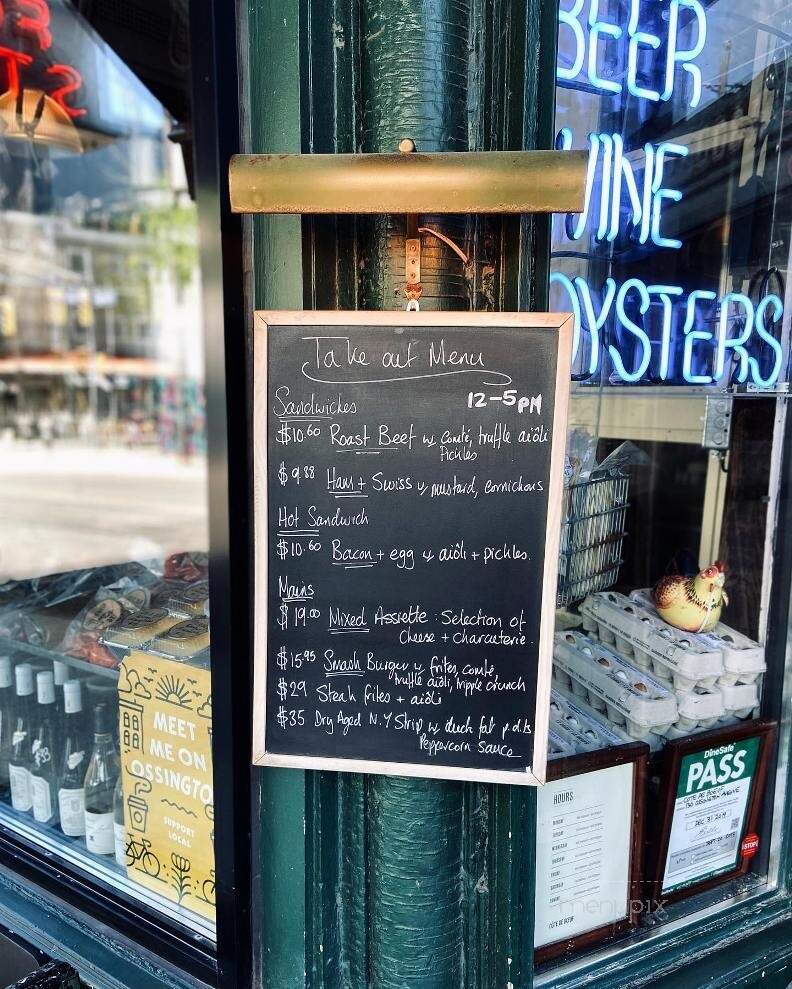 BEER
WINE
OYSTERS
Take out Menu
12-5PM
Sandwiches
$10.60 Roast Beef w comté, truffle aiöli
Pickles
$9.88 Ham + Swiss w mustard, cornichons
Hot Sandwich
$10.60 Bacon + egg w aiöli + pickles.
Mains
$19.00 Mixed Assiette: Selection of
Cheese + charcuterie.
$15.95 Smash Burger w frites, comté,
truffle aiöli, tripple crunch
$29 Steak frites + aiöli
$35 Dry Aged N.Y Strip w duck fat p.d.ts
Peppercorn Sauce
MEET
ME ON
OSSINGTO
SUPPORT
LOCAL
HOURS
CÔTE DE BŒUF
DineSafe
PASS
COTE DE BOEUF
OSSINGTON AVENUE
DEC 31 2019
STOP
menupix